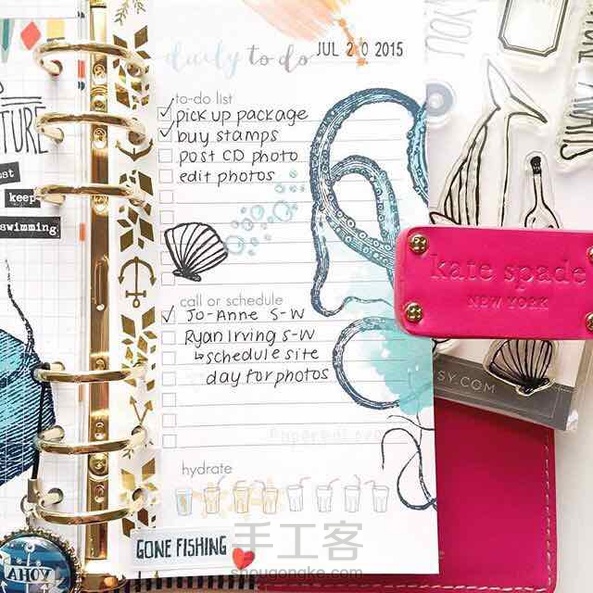 daily to do
JUL 20 2015
to-do list
pick up package
buy stamps
post CD photo
edit photos
call or schedule
Jo-Anne S-W
Ryan Irving S-W
↳schedule site
day for photos
hydrate
GONE FISHING
keep
swimming.
kate spade
NEW YORK
SY.COM
AHOY
手工客
shougongke.com